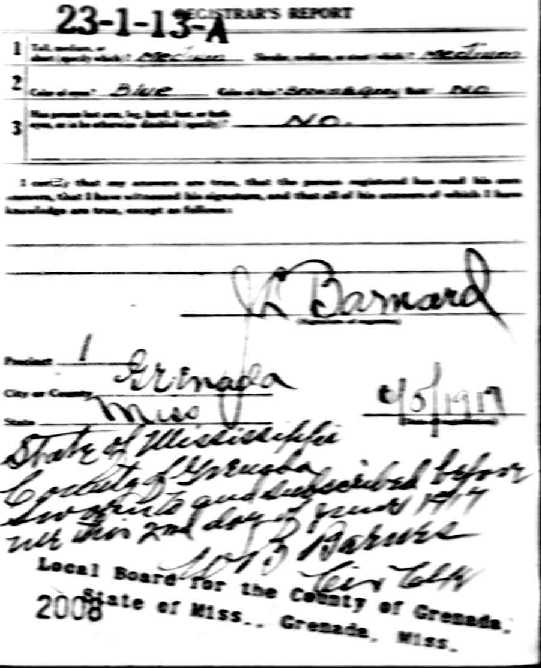 23-1-13-A
REGISTRAR'S REPORT
1 Tall, medium, or short (specify which)? Medium Slender, medium, or stout (which)? Medium
2 Color of eyes? Blue Color of hair? Brown & Gray Bald? No
3 Has person lost arm, leg, hand, foot, or both eyes, or is he otherwise disabled (specify)? No.
I certify that my answers are true, that the person registered has read his own
answers, that I have witnessed his signature, and that all of his answers of which I have
knowledge are true, except as follows:
Barnard
Precinct 1
City or County Grenada
State Miss
6/5/1917
State of Mississippi
County of Grenada
Sworn to and subscribed before
me this 2nd day of June 1917
B Barnes
Cir Clk
Local Board for the County of Grenada.
State of Miss., Grenada, Miss.
2008